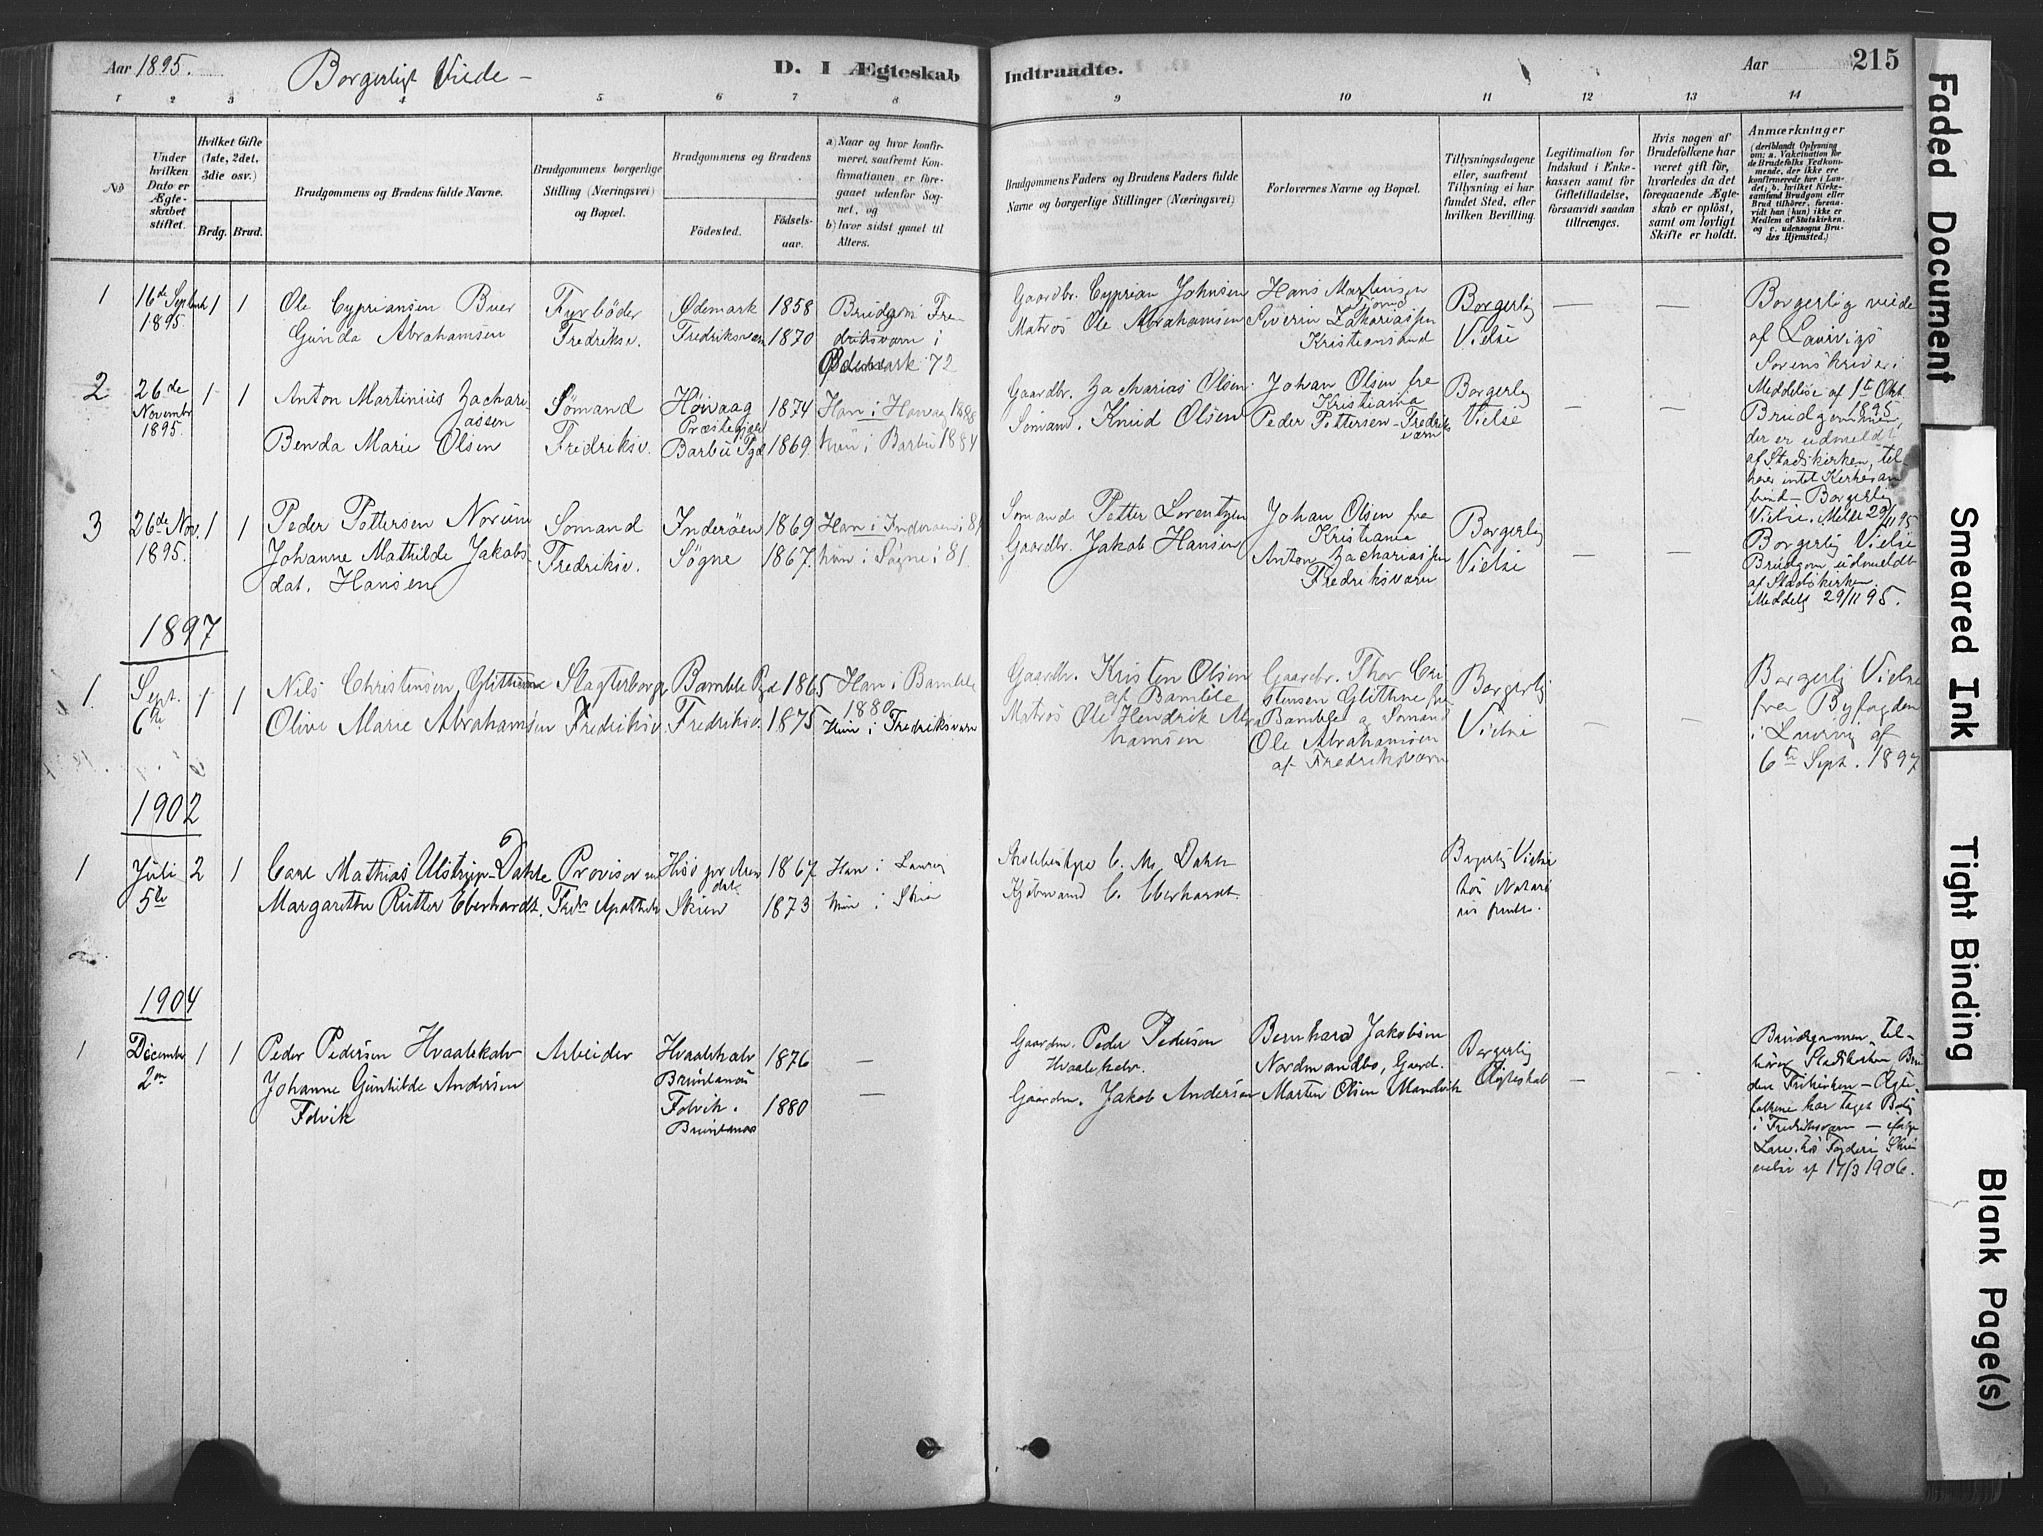 Aar 1895.
Borgerligt Viede -
D. I Ægteskab
Indtraadte.
Aar
215
1 2 3 4 5 6 7 8 9 10 11 12 13 14
No
Under hvilken Dato er Ægteskabet stiftet.
Hvilket Gifte (1ste, 2det, 3die osv.)
Brdg. Brud.
Brudgommens og Brudens fulde Navne.
Brudgommens borgerlige Stilling (Næringsvei) og Bopæl.
Brudgommens og Brudens
Fødested.
Fødsels-aar.
a) Naar og hvor konfirmeret, saafremt Konfirmationen er foregaaet udenfor Sognet, og
b) hvor sidst gaaet til Alters.
Brudgommens Faders og Brudens Faders fulde Navne og borgerlige Stillinger (Næringsvei)
Forlovernes Navne og Bopæl.
Tillysningsdagene eller, saafremt Tillysning ei har fundet Sted, efter hvilken Bevilling.
Legitimation for Indskud i Enkekassen samt for Giftetilladelse, forsaavidt saadan tiltrænges.
Hvis nogen af Brudefolkene har været gift før, hvorledes da det foregaaende Ægteskab er opløst, samt om lovligt Skifte er holdt.
Anmærkninger
(deriblandt Oplysning om: a. Vakcination for de Brudefolks Vedkommende, der ikke ere konfirmerede her i Landet; b. hvilket Kirkesamfund Brudgom eller Brud tilhører, forsaavidt han (hun) ikke er Medlem af Statskirken, og c. udensogns Brudes Hjemsted.)
1 16de Septembr 1895 1 1
Ole Cypriansen Buer
Gunda Abrahamsen
Fyrbøder
Fredriksv.
Ødemark 1858
Fredriksværn 1870
Brudgom Fredriksværn i
Ødemark 72
Gaardbr. Cyprian Johnsen
Matros Ole Abrahamsen
Hans Martinsen
Tjømø
Severin Zakariassen
Kristiansand
Borgerlig
Vielse
— —
Borgerlig viede
af Laurvigs
Sorenskriveri
Meddelelse af 1ste Okt.
1895
2 26de Novembr 1895. 1 1
Anton Martinius Zachariassen
Benda Marie Olsen
Sømand
Fredriksv.
Høivaag
Præstegjæld 1874
Barbu Pgd 1869.
Han i Høivaag 1888
hun i Barbu 1884
Gaardbr. Zacharias Olsen.
Sømand. Knud Olsen
Johan Olsen fra
Kristiania
Peder Pettersen - Fredriksværn
Borgerlig
Vielse
— —
Brudgommen,
der er udmeldt
af Stadskirken, tilhører intet Kirkesamfund - Borgerlig
Vielse. Meldt 29/11 95
3 26de Nov. 1895. 1 1
Peder Pettersen Norum
Johanne Mathilde Jakobsdat. Hansen
Sømand
Fredriksv.
Inderøen 1869
Søgne 1867.
Han i Inderøen i 8
hun i Søgne i 81.
Sømand Petter Lorentzen
Gaardbr. Jakob Hansen
Johan Olsen fra
Kristiania
Anton Zachariassen
Fredriksværn
Borgerlig
Vielse
— —
Borgerlig Vielse
Brudgom udmeldt
af Stadskirken.
Meddelt 29/11 95.
1897
1. Sept. 6te 1 1
Nils Christensen Glittum
Olive Marie Abrahamsen
Slagterborger
Fredriksv.
Bamble Pgd 1865
Fredriksv. 1875
Han i Bamble
1880
Hun i Fredriksværn
Gaardbr. Kristen Olsen
af Bamble
Matros Ole Hendrik Abrahamsen
Gaardbr. Thor Christensen Glittum fra
Bamble og Sømand
Ole Abrahamsen
af Fredriksværn
Borgerlig
Vielse
— —
Borgerlig Vielse
fra Byfogden
i Laurvig af
6te Sept. 1897
1902
1 Juli 5te 2 1
Carl Mathias Ulstrup Dahle
Margarethe Rütter Eberhardt.
Provisor
Skien
1867
1873
Han i Laurvig
hun i Skien
C. M. Dahle
Kjøbmand C. Eberhardt.
Borgerlig Vielse
hos Notarius
1904
1 December 2den 1 1
Peder Pedersen Hvaalskalv
Johanne Gunhilde Andersen
Folvik
Arbeider
Hvaalskalv
Brunlanæs 1876
Folvik.
Brunlanæs 1880
— —
Gaardm. Peder Pedersen
Hvaalskalv.
Gaardm. Jakob Andersen
Bernhard Jakobsen
Nordmandbø, Gaard.
Martin Olsen Mandvik
Borgerlig
Ægteskab
— —
Brudgommen tilhører Statskirken Bruden Frikirken - Ægtefolkene har taget Bolig
i Fredriksværn —
17/3 1906.
Faded Document
Smeared Ink
Tight Binding
Blank Page(s)